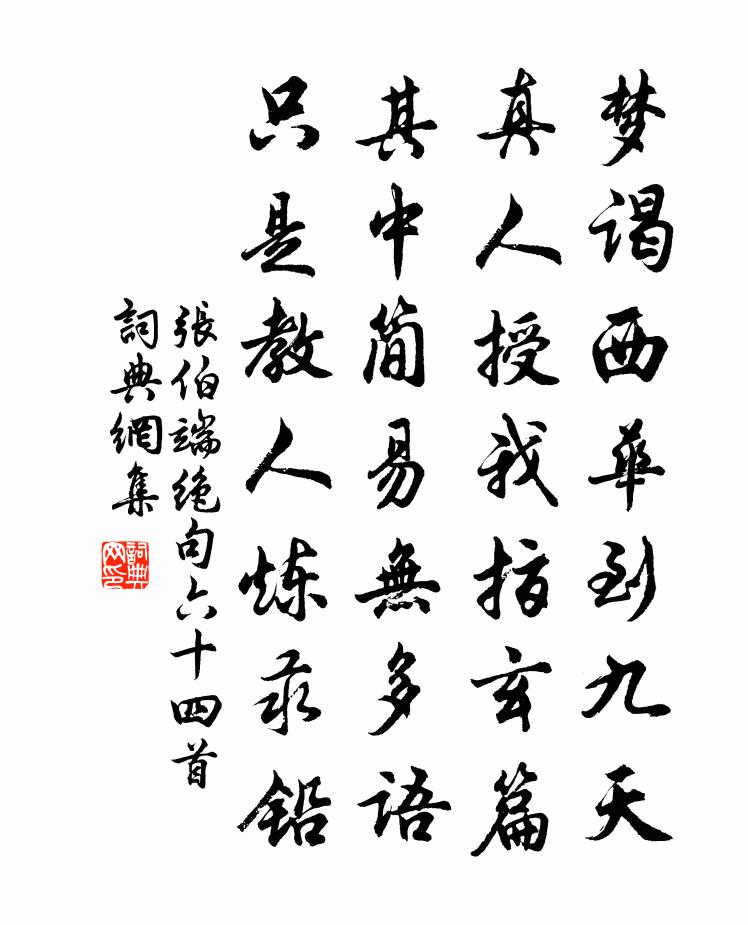 梦谒西華到九天
真人授我指玄篇
其中简易無多语
只是教人炼汞鉛
張伯端绝句六十四首
詞典網集
詞典网印